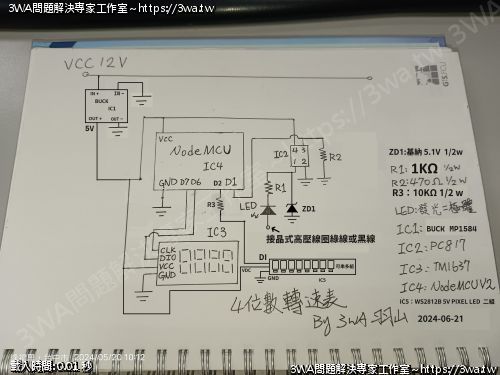 3WA問題解決專家工作室~https://3wa.tw
3WA問題解決專家工作室~https://3wa.tw
VCC 12V
IN + IN -
BUCK
IC1
OUT + OUT -
5V
VCC
NodeMCU
IC4
GND D7 D6 D2 D1
IC2
4 3
1 2
R2
R1
LED
ZD1
R3
接晶式高壓線圈綠線或黑線
IC3
CLK
DIO
VCC
GND
DI
VDC
GND
可串多組
IC5
4位數轉速表
By 3WA 羽山
ZD1:基納 5.1V 1/2w
R1: 1KΩ 1/2W
R2: 470Ω 1/2W
R3 : 10KΩ 1/2 w
LED:發光二極體
IC1: BUCK MP1584
IC2: PC817
IC3: TM1637
IC4: NodeMCU V2
IC5 : WS2812B 5V PIXEL LED 二組
2024-06-21
2024/05/20 10:12
載入時間:0.01 秒
3WA問題解決專家工作室~https://3wa.tw